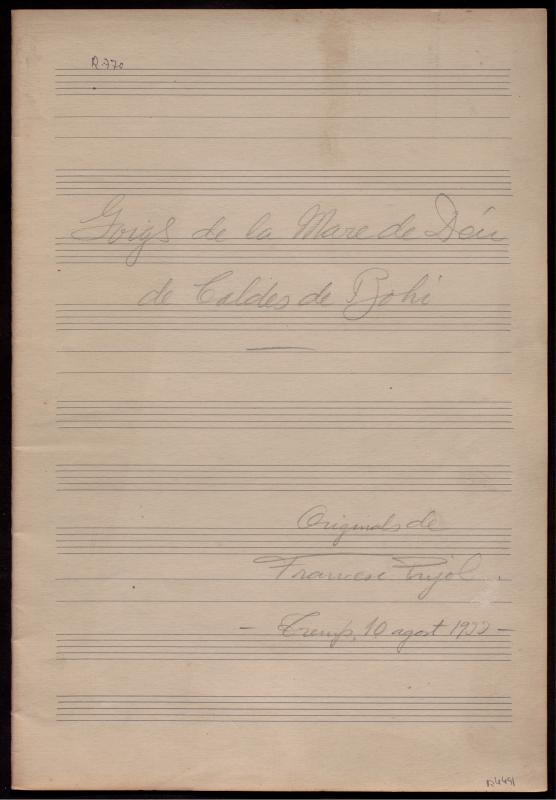 R. 770
Goigs de la Mare de Déu
de Caldes de Bohí
Originals de
Francesc Pujol.
- Tremp, 10 agost 1922 -